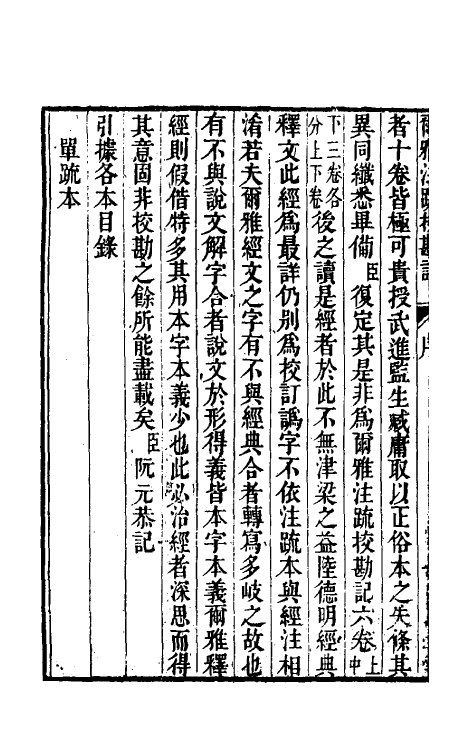 爾雅注疏挍勘記　序
者十卷皆極可貴授武進監生臧庸取以正俗本之失條其
異同纖悉畢備臣復定其是非爲爾雅注疏挍勘記六卷上中
下三卷各分上下卷後之讀是經者於此不無津梁之益陸德明經典
釋文此經爲最詳仍别爲校訂譌字不依注疏本與經注相
淆若夫爾雅經文之字有不與經典合者轉寫多岐之故也
有不與說文解字合者說文於形得義皆本字本義爾雅釋
經則假借特多其用本字本義少也此必治經者深思而得
其意固非挍勘之餘所能盡載矣臣阮元恭記
引據各本目錄
單疏本